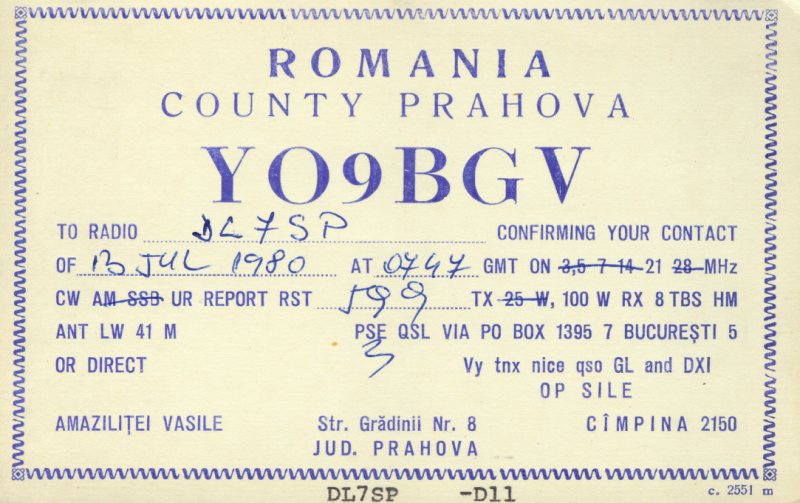 ROMANIA
COUNTY PRAHOVA
YO9BGV
TO RADIO DL7SP CONFIRMING YOUR CONTACT
OF 13 JUL 1980 AT 0747 GMT ON 3,5 7 14 21 28 MHz
CW AM SSB UR REPORT RST 599 TX 25 W, 100 W RX 8 TBS HM
ANT LW 41 M PSE QSL VIA PO BOX 1395 7 BUCUREȘTI 5
OR DIRECT Vy tnx nice qso GL and DXI
OP SILE
AMAZILIȚEI VASILE Str. Grădinii Nr. 8 CÎMPINA 2150
JUD. PRAHOVA
DL7SP -D11 c. 2551 m